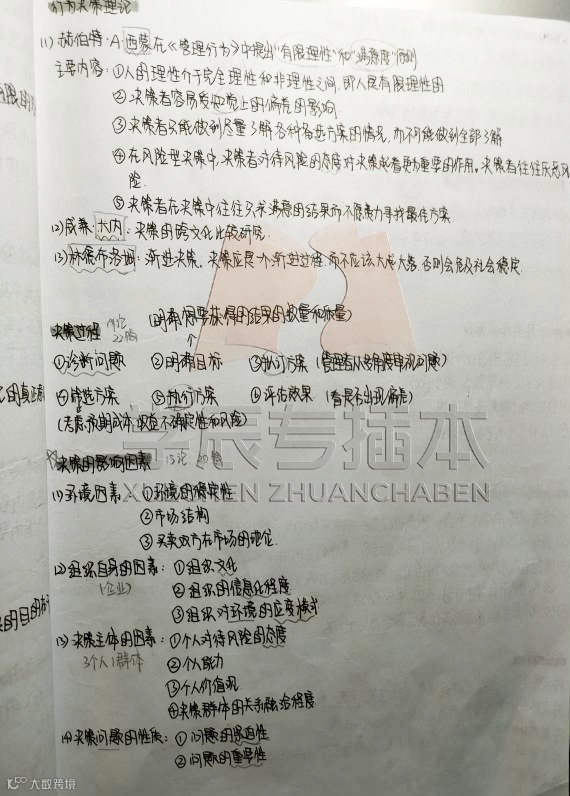 行为决策理论
(1) 赫伯特·A·西蒙在《管理行为》中提出"有限理性"和"满意度"原则
主要内容: ①人的理性介于完全理性和非理性之间, 即人是有限理性的
② 决策者容易受知觉上的偏差的影响
③ 决策者只能做到尽量了解各种备选方案的情况, 而不可能做到全部了解
④ 在风险型决策中, 决策者对待风险的态度对决策起着更为重要的作用。决策者往往厌恶风
险.
⑤ 决策者在决策中往往只求满意的结果而不愿费力寻找最佳方案
(2) 威廉·大内: 决策的跨文化比较研究.
(3) 林德布洛姆: 渐进决策. 决策应是一个渐进过程, 而不应该大起大落, 否则会危及社会稳定.
(明确你想要获得的结果的数量和质量)
决策过程
①诊断问题 ②明确目标 ③拟订方案 (管理者从多角度审视问题)
④筛选方案 ⑤执行方案 ⑥评估效果 (看是否出现偏差)
(考虑:预期成本、收益、不确定性和风险)
学辰专插本
XUECHEN ZHUANCHABEN
决策的影响因素
(1) 环境因素: ①环境的稳定性
②市场结构
③买卖双方在市场的地位
(2) 组织自身的因素: ①组织文化
(企业) ② 组织的信息化程度
③ 组织对环境的应变模式
(3) 决策主体的因素: ①个人对待风险的态度
3个人1群体 ② 个人能力
③个人价值观
④决策群体的关系融洽程度
(4) 决策问题的性质: ① 问题的紧迫性
② 问题的重要性
大数跨境